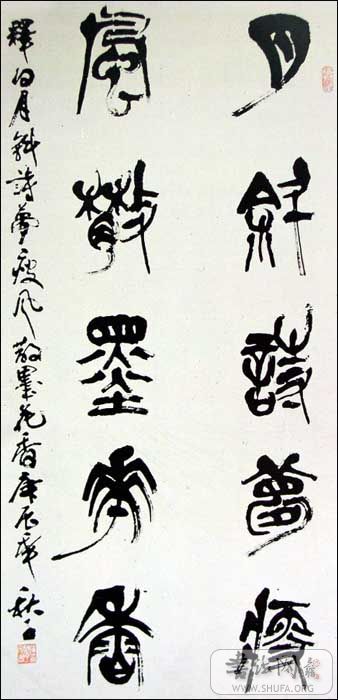 月斜詩夢瘦
風散墨花香
釋曰月斜詩夢瘦風散墨花香庚辰年秋石
书法网
WWW.SHUFA.ORG